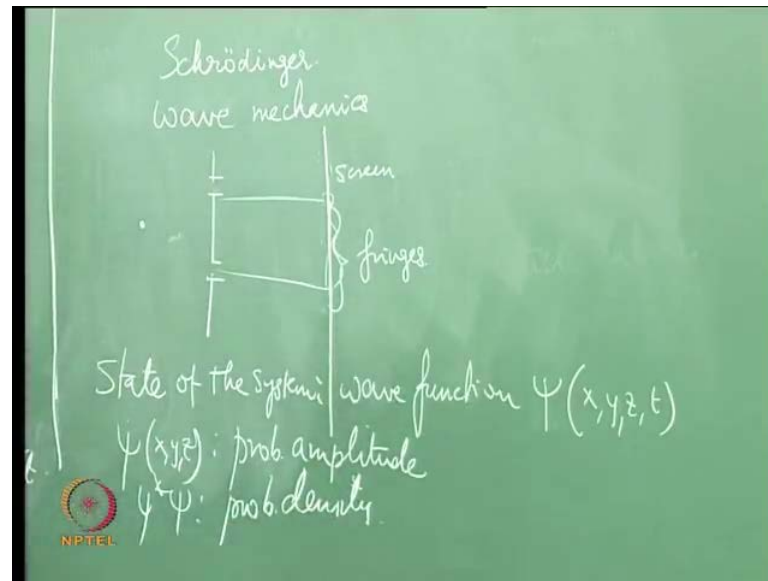 Schrödinger.
wave mechanics
screen
fringes
State of the system: wave function Ψ(x,y,z,t)
ψ(x,y,z): prob. amplitude
ψ*ψ: prob. density.
NPTEL